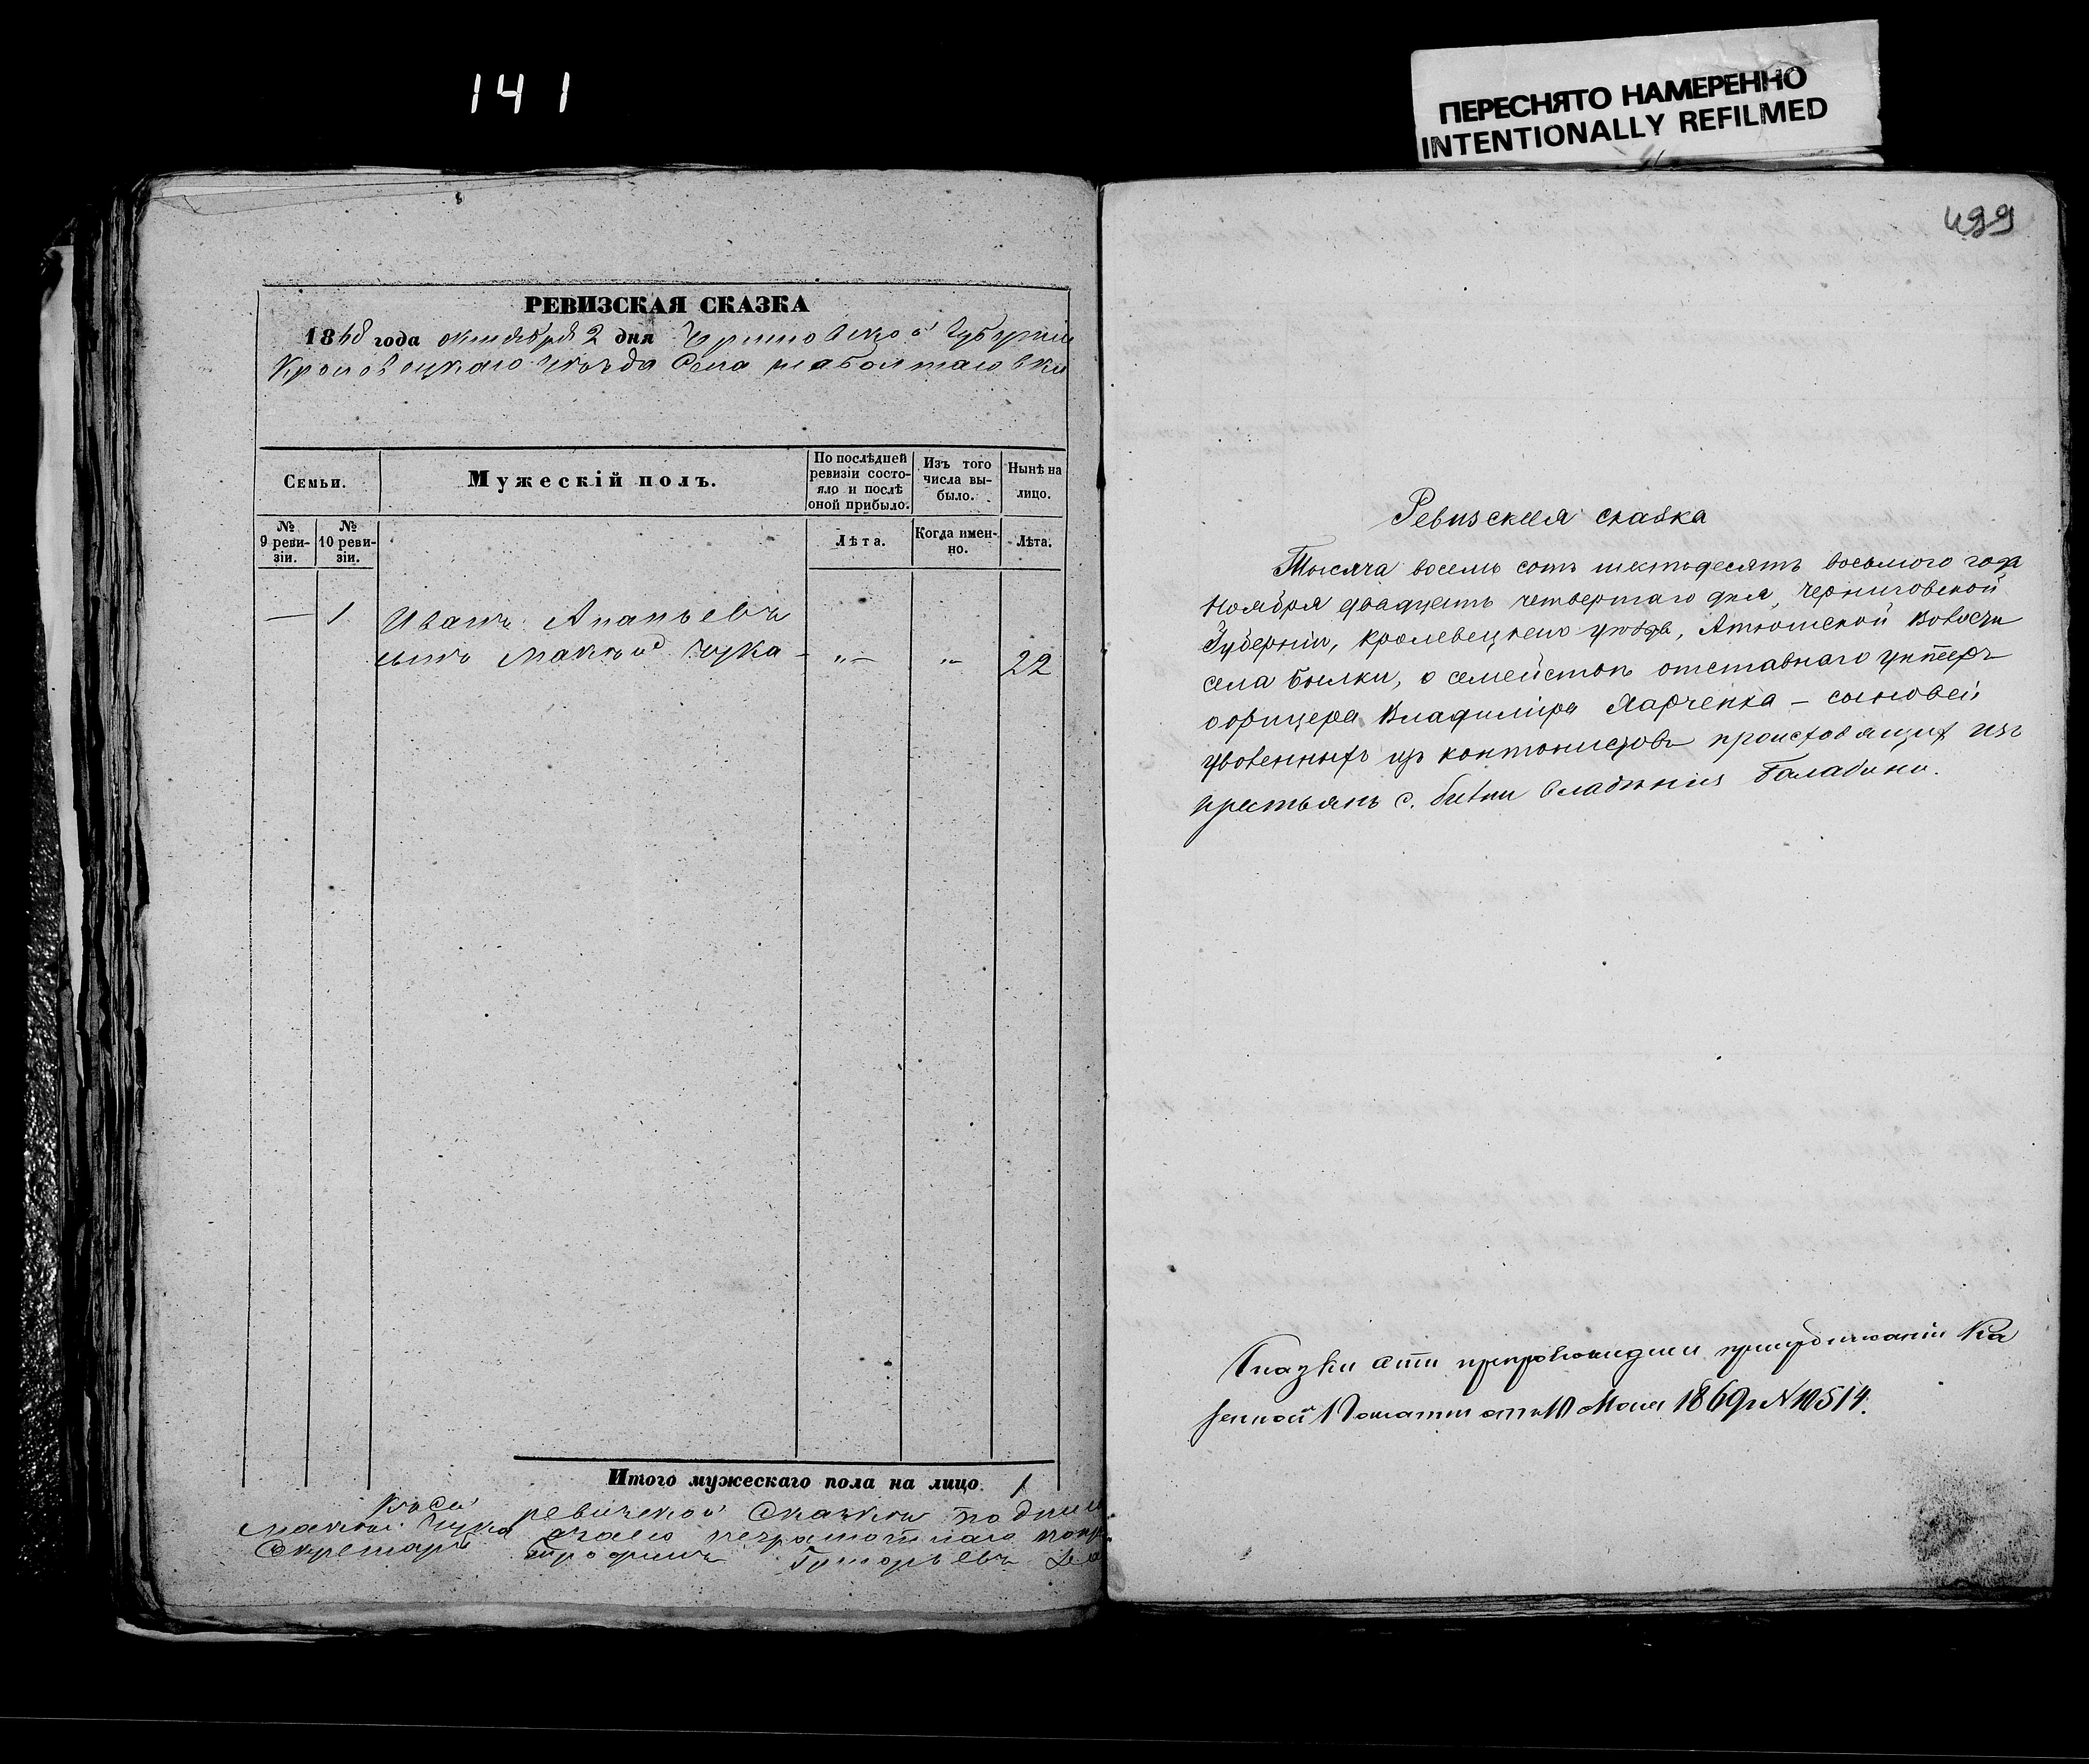 141
ПЕРЕСНЯТО НАМЕРЕННО
INTENTIONALLY REFILMED
РЕВИЗСКАЯ СКАЗКА
1868 года октября 2 дня Черниговской Губерніи
Кролевецкаго уѣзда Села
Семьи.
Мужескій полъ.
По послѣдней ревизіи состояло и послѣ оной прибыло.
Изъ того числа выбыло.
Нынѣ на лицо.
№ 9 ревизіи.
№ 10 ревизіи.
Лѣта.
Когда именно.
Лѣта.
— 1 Иванъ Ананьевъ
сынъ Чука - „— „— 22
Итого мужескаго пола на лицо. 1
Къ сей ревизской Сказки
Чука неграмотнаго
Секретарь Трофимъ Григорьевъ
499
Ревизская сказка
Тысяча восемь сотъ шестьдесятъ восьмого года
Ноября двадцать четвертаго дня, Черниговской
Губерніи, Кролевецкаго уѣзда, Атюшской Волости
села Билки, о семействѣ отставнаго унтеръ
офицера Владиміра Харченка — сыновей
уволенныхъ изъ кантонистовъ происходящих изъ
крестьянъ с. Билки владѣнія
Сказки препровождены
Палаты отъ 10 Мая 1869 г № 10514.